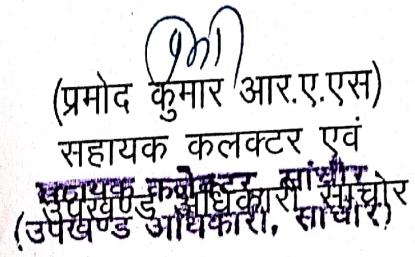 (प्रमोद कुमार आर.ए.एस)
सहायक कलक्टर एवं
सहायक कलेक्टर, सांचौर
उपखण्ड अधिकारी, सांचोर
(उपखण्ड अधिकारी, सांचौर)